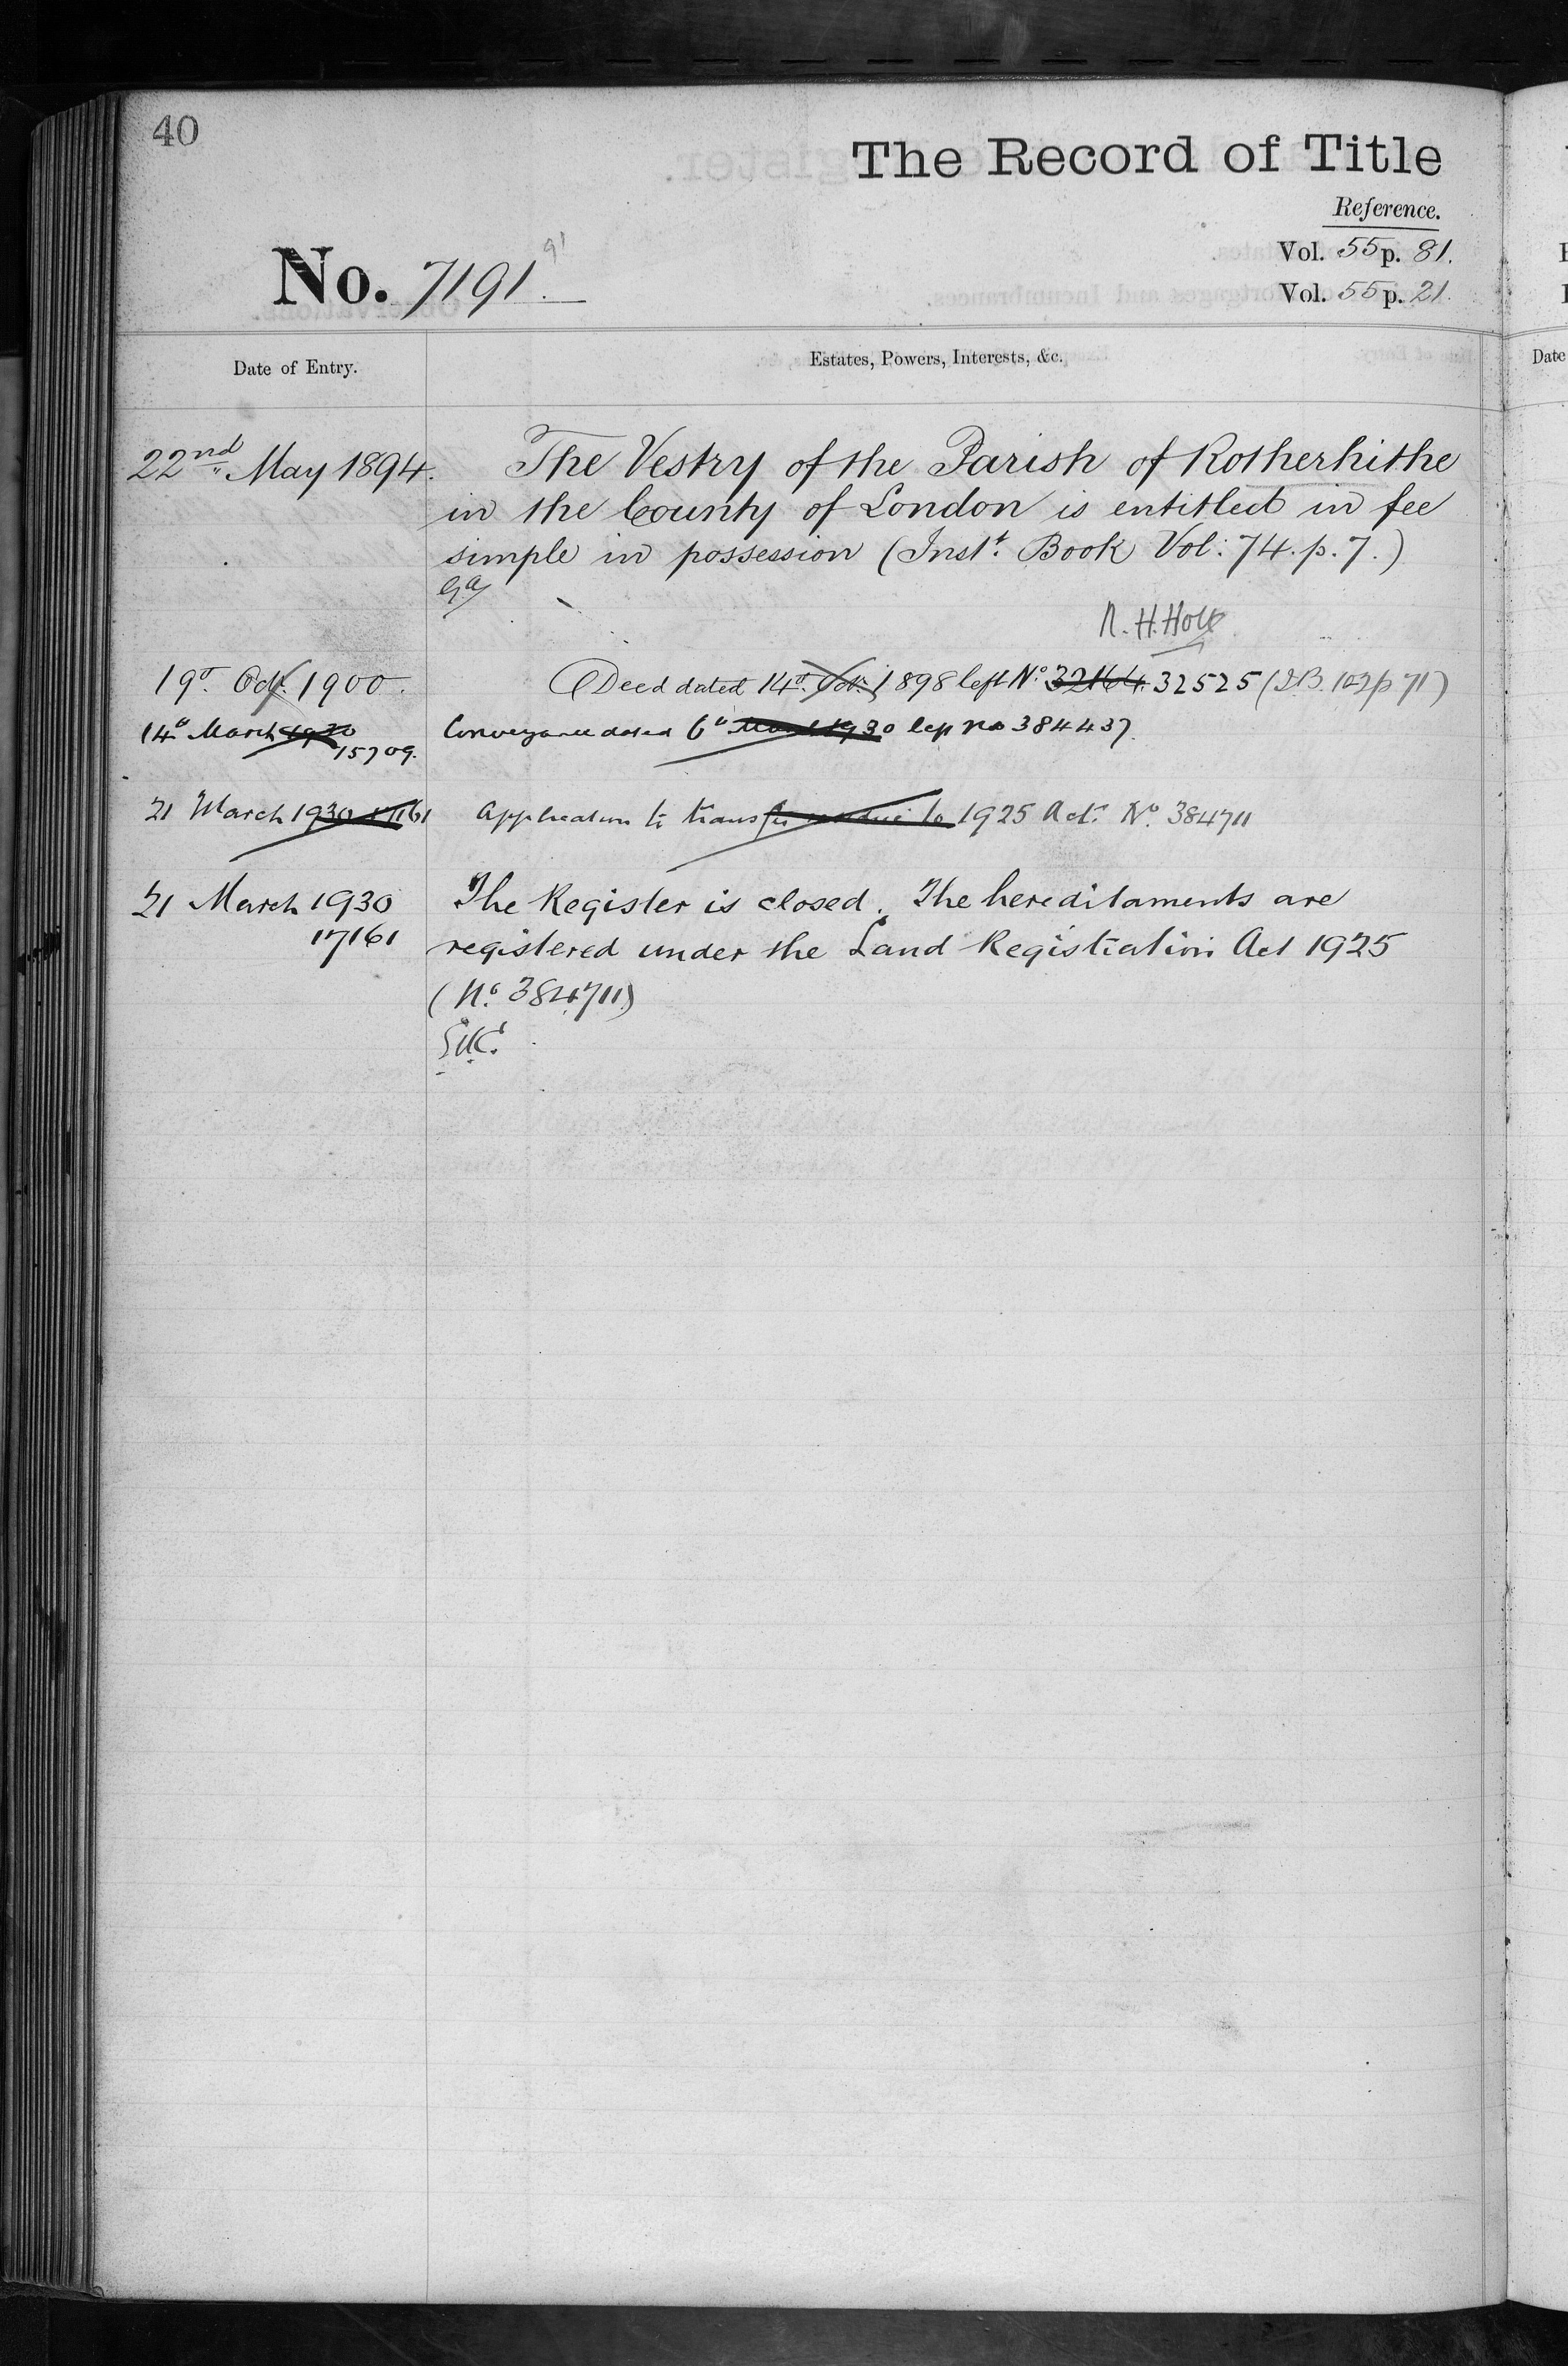 40
The Record of Title
Reference.
Vol. 55 p. 81.
No. 7191.
91
Vol. 55 p. 21.
Date of Entry.
Estates, Powers, Interests, &c.
22nd May 1894.
The Vestry of the Parish of Rotherhithe
in the County of London is entitled in fee
simple in possession (Inst. Book Vol: 74. p. 7.)
R. H. Holt
19o. Oct. 1900.
Deed dated 14o. Oct. 1898 left No. 32164. 32525 (I.B. 102 p 71)
14o March 1930
15709.
Conveyance dated 6o March 1930 left no 384437.
21 March 1930 17161
Application to transfer residue to 1925 Act. No. 384711
21 March 1930
17161
The Register is closed. The hereditaments are
registered under the Land Registration Act 1925
(No. 384711)